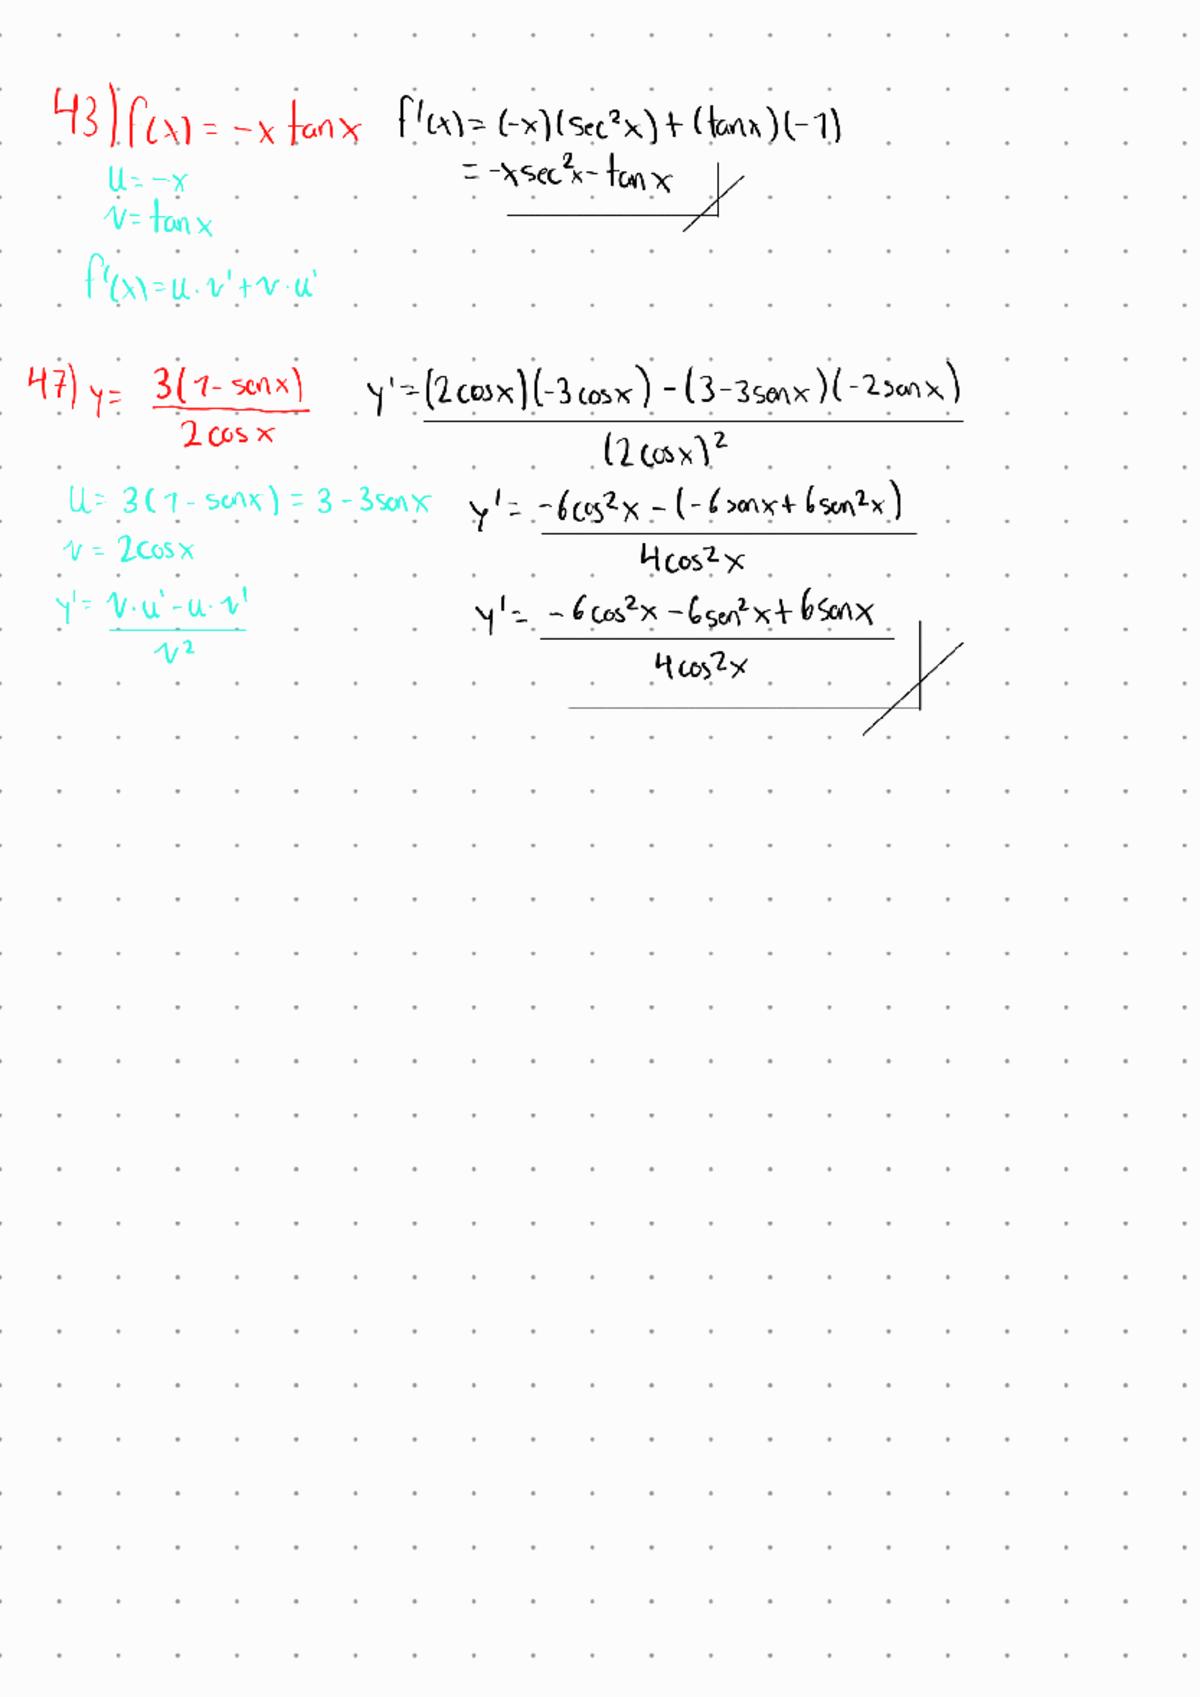 43) f(x) = -x tan x   f'(x) = (-x)(sec²x) + (tanx)(-1)
= -xsec²x - tan x
u = -x
v = tan x
f'(x) = u · v' + v · u'
47) y = 3(1 - senx) / 2cos x   y' = (2cosx)(-3cosx) - (3-3senx)(-2senx) / (2cosx)²
u = 3(1 - senx) = 3 - 3senx   y' = -6cos²x - (-6senx + 6sen²x) / 4cos²x
v = 2cosx
y' = v · u' - u · v' / v²   y' = -6cos²x - 6sen²x + 6senx / 4cos²x